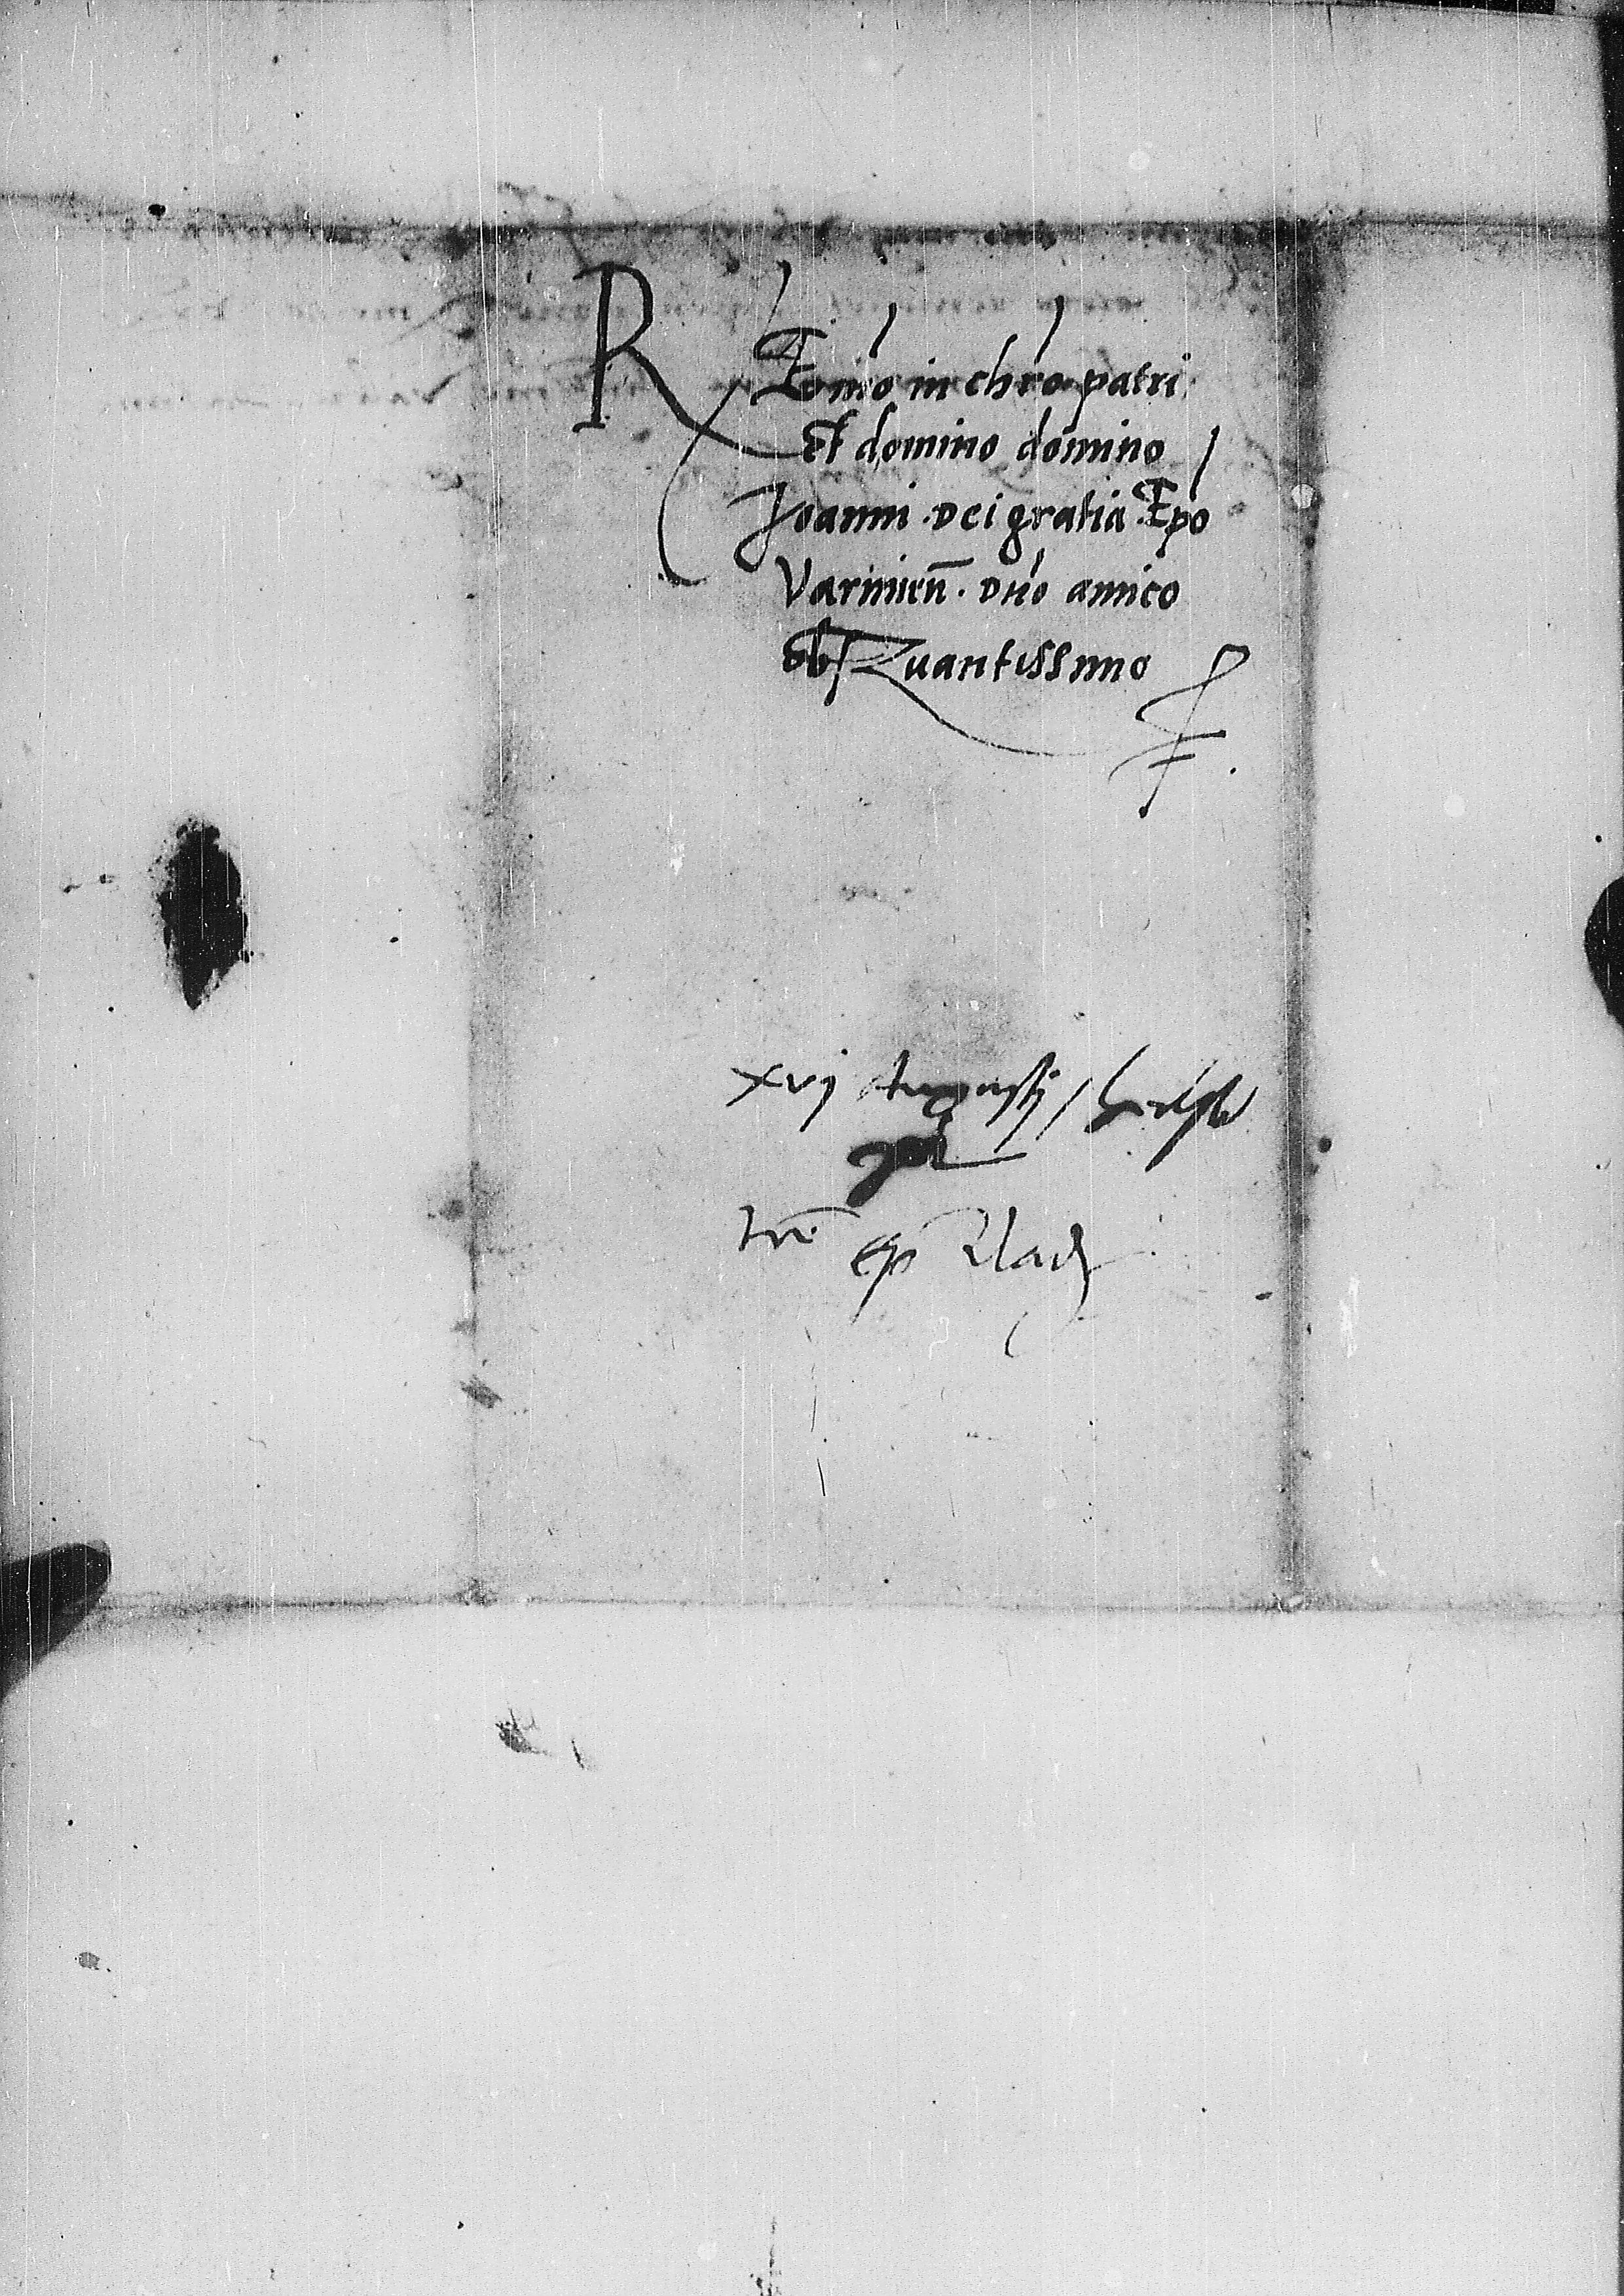 REmo in chro patri
Et domino domino
Joanni Dei gratia Epo
Varmien̄. Dno amico
obseruantissimo
xvj Augusti /
lrē ep̄ Vlad